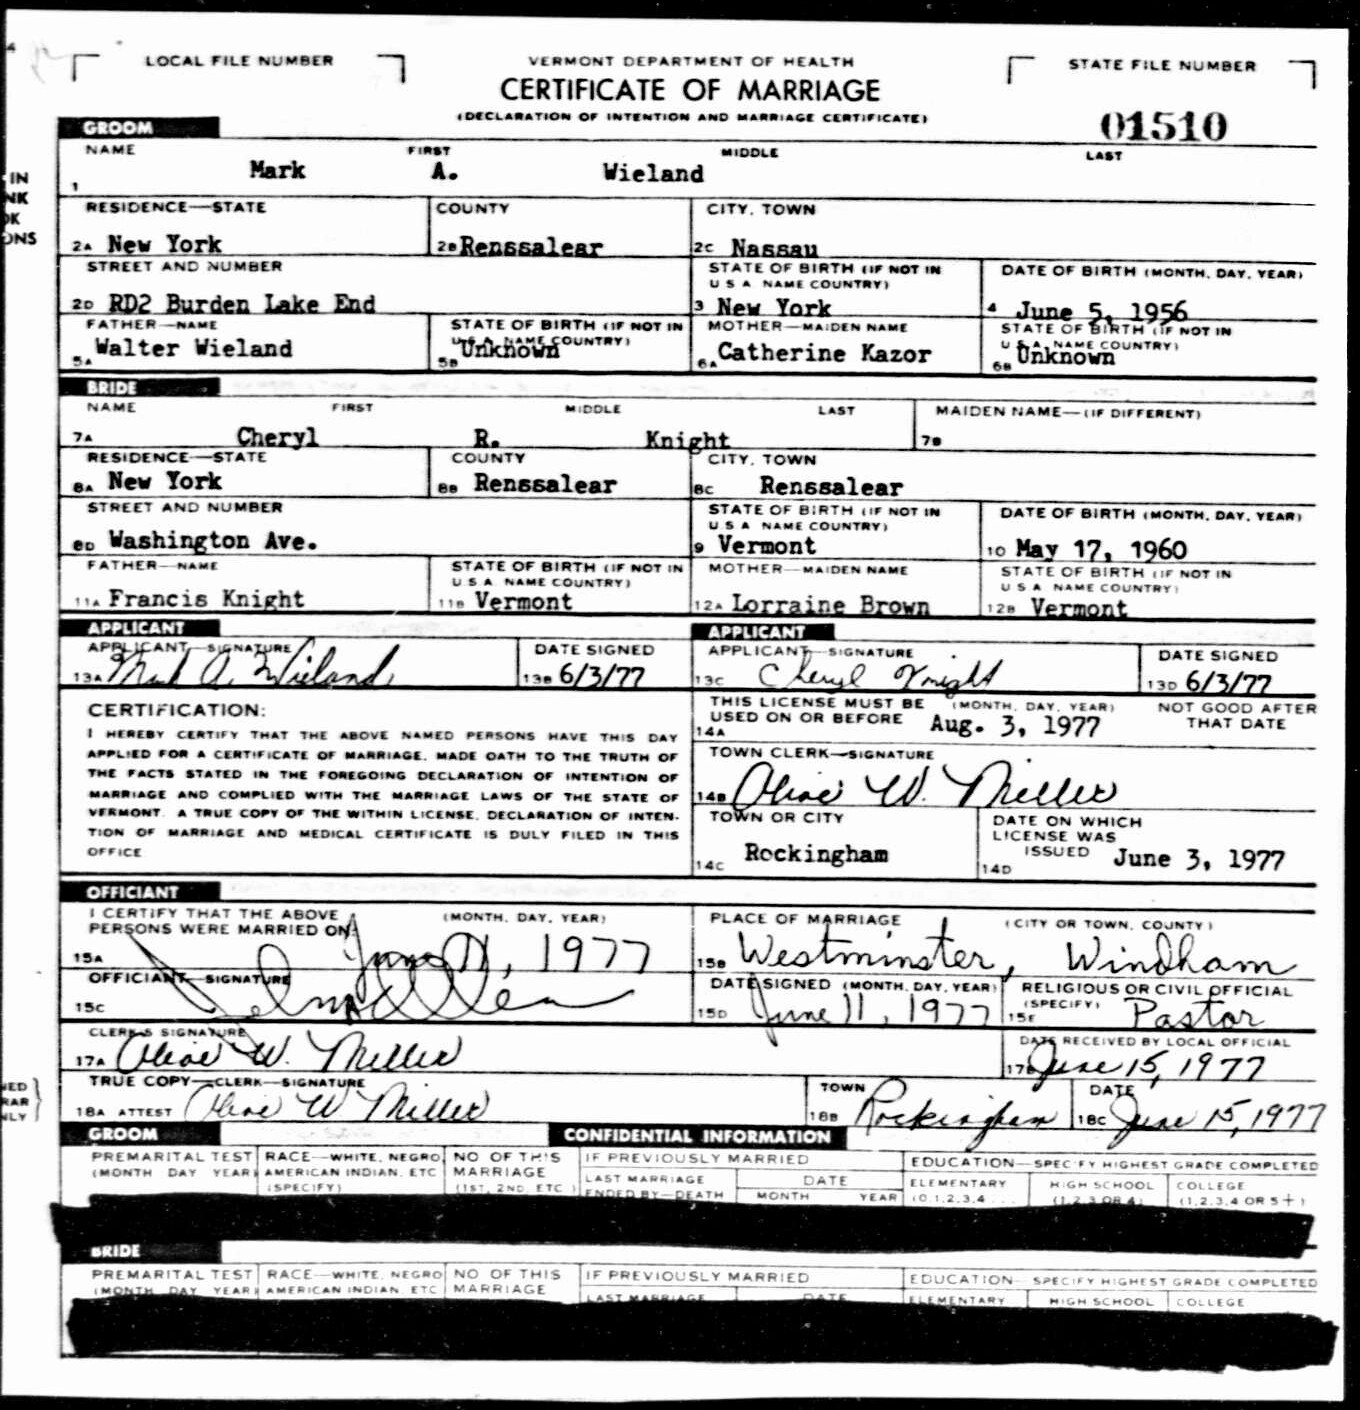 4
LOCAL FILE NUMBER
VERMONT DEPARTMENT OF HEALTH
STATE FILE NUMBER
CERTIFICATE OF MARRIAGE
(DECLARATION OF INTENTION AND MARRIAGE CERTIFICATE)
01510
GROOM
NAME FIRST MIDDLE LAST
1 Mark A. Wieland
IN
NK
OK
ONS
RESIDENCE—STATE COUNTY CITY, TOWN
2A New York 2B Renssalear 2C Nassau
STREET AND NUMBER STATE OF BIRTH (IF NOT IN U S A NAME COUNTRY) DATE OF BIRTH (MONTH, DAY, YEAR)
2D RD2 Burden Lake End 3 New York 4 June 5, 1956
FATHER—NAME STATE OF BIRTH (IF NOT IN U S A NAME COUNTRY) MOTHER—MAIDEN NAME STATE OF BIRTH (IF NOT IN U S A NAME COUNTRY)
5A Walter Wieland 5B Unknown 6A Catherine Kazor 6B Unknown
BRIDE
NAME FIRST MIDDLE LAST MAIDEN NAME—(IF DIFFERENT)
7A Cheryl R. Knight 7B
RESIDENCE—STATE COUNTY CITY, TOWN
8A New York 8B Renssalear 8C Renssalear
STREET AND NUMBER STATE OF BIRTH (IF NOT IN U S A NAME COUNTRY) DATE OF BIRTH (MONTH, DAY, YEAR)
8D Washington Ave. 9 Vermont 10 May 17, 1960
FATHER—NAME STATE OF BIRTH (IF NOT IN U S A NAME COUNTRY) MOTHER—MAIDEN NAME STATE OF BIRTH (IF NOT IN U S A NAME COUNTRY)
11A Francis Knight 11B Vermont 12A Lorraine Brown 12B Vermont
APPLICANT APPLICANT
APPLICANT—SIGNATURE DATE SIGNED APPLICANT—SIGNATURE DATE SIGNED
13A Mark A. Wieland 13B 6/3/77 13C Cheryl Knight 13D 6/3/77
CERTIFICATION:
I HEREBY CERTIFY THAT THE ABOVE NAMED PERSONS HAVE THIS DAY
APPLIED FOR A CERTIFICATE OF MARRIAGE, MADE OATH TO THE TRUTH OF
THE FACTS STATED IN THE FOREGOING DECLARATION OF INTENTION OF
MARRIAGE AND COMPLIED WITH THE MARRIAGE LAWS OF THE STATE OF
VERMONT. A TRUE COPY OF THE WITHIN LICENSE, DECLARATION OF INTEN-
TION OF MARRIAGE AND MEDICAL CERTIFICATE IS DULY FILED IN THIS
OFFICE
THIS LICENSE MUST BE (MONTH, DAY, YEAR) NOT GOOD AFTER
USED ON OR BEFORE Aug. 3, 1977 THAT DATE
14A
TOWN CLERK—SIGNATURE
14B Olive W. Miller
TOWN OR CITY DATE ON WHICH LICENSE WAS ISSUED
14C Rockingham 14D June 3, 1977
OFFICIANT
I CERTIFY THAT THE ABOVE (MONTH, DAY, YEAR) PLACE OF MARRIAGE (CITY OR TOWN, COUNTY)
PERSONS WERE MARRIED ON
15A June 11, 1977 15B Westminster, Windham
OFFICIANT—SIGNATURE DATE SIGNED (MONTH, DAY, YEAR) RELIGIOUS OR CIVIL OFFICIAL (SPECIFY)
15C 15D June 11, 1977 15E Pastor
CLERK'S SIGNATURE DATE RECEIVED BY LOCAL OFFICIAL
17A Olive W. Miller 17B June 15, 1977
TRUE COPY—CLERK—SIGNATURE TOWN DATE
18A ATTEST Olive W Miller 18B Rockingham 18C June 15, 1977
NED
RAR
NLY
GROOM CONFIDENTIAL INFORMATION
PREMARITAL TEST RACE—WHITE, NEGRO NO OF THIS IF PREVIOUSLY MARRIED EDUCATION—SPECIFY HIGHEST GRADE COMPLETED
(MONTH DAY YEAR) AMERICAN INDIAN, ETC MARRIAGE LAST MARRIAGE DATE ELEMENTARY HIGH SCHOOL COLLEGE
(SPECIFY) (1ST, 2ND, ETC) ENDED BY—DEATH MONTH YEAR (0,1,2,3,4 ... (1,2,3 OR 4) (1,2,3,4 OR 5+)
BRIDE
PREMARITAL TEST RACE—WHITE, NEGRO NO OF THIS IF PREVIOUSLY MARRIED EDUCATION—SPECIFY HIGHEST GRADE COMPLETED
(MONTH DAY YEAR) AMERICAN INDIAN, ETC MARRIAGE LAST MARRIAGE DATE ELEMENTARY HIGH SCHOOL COLLEGE